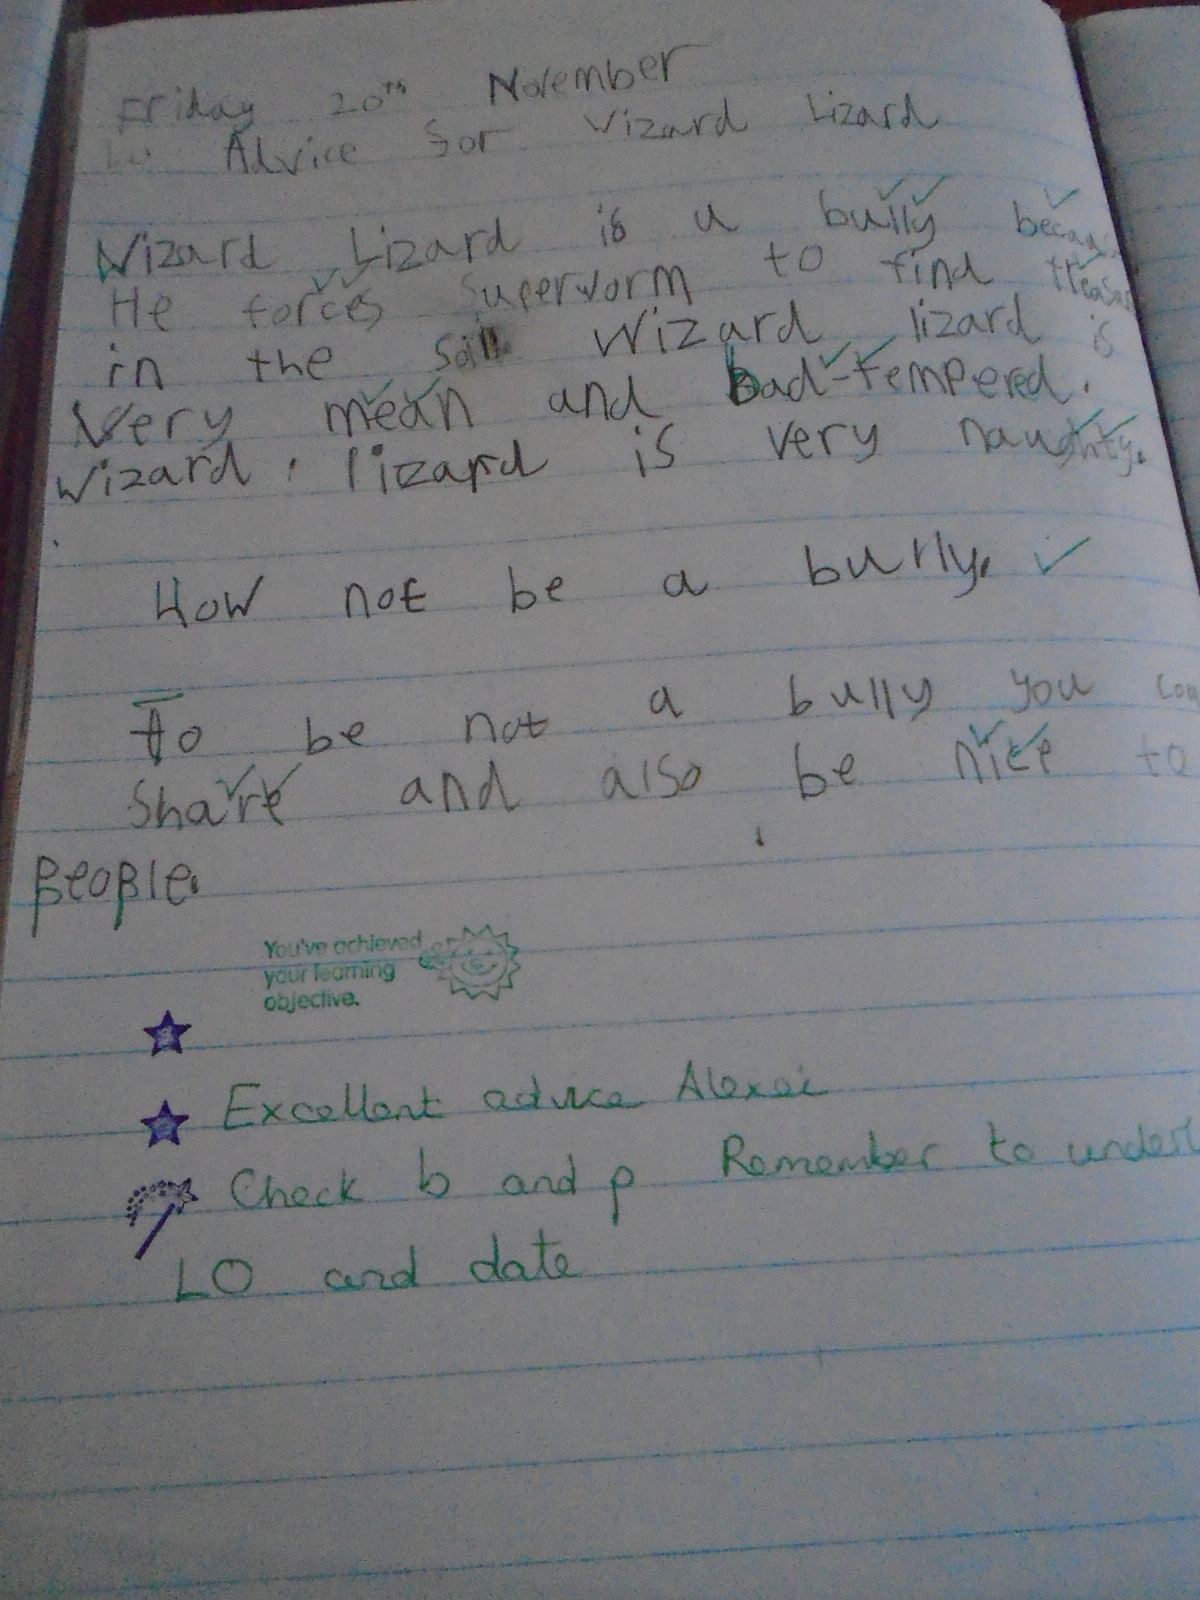 Friday 20th November
Lo Advice for Wizard Lizard
Wizard Lizard is a bully
He forces Superworm to find
in the soil Wizard lizard is
Very mean and bad-tempered.
wizard lizard is very naughty.
How not be a bully.
To be not a bully you
Share and also be nice to
people.
You've achieved
your learning
objective.
Excellent advice Alexei
Check b and p Remember to
LO and date